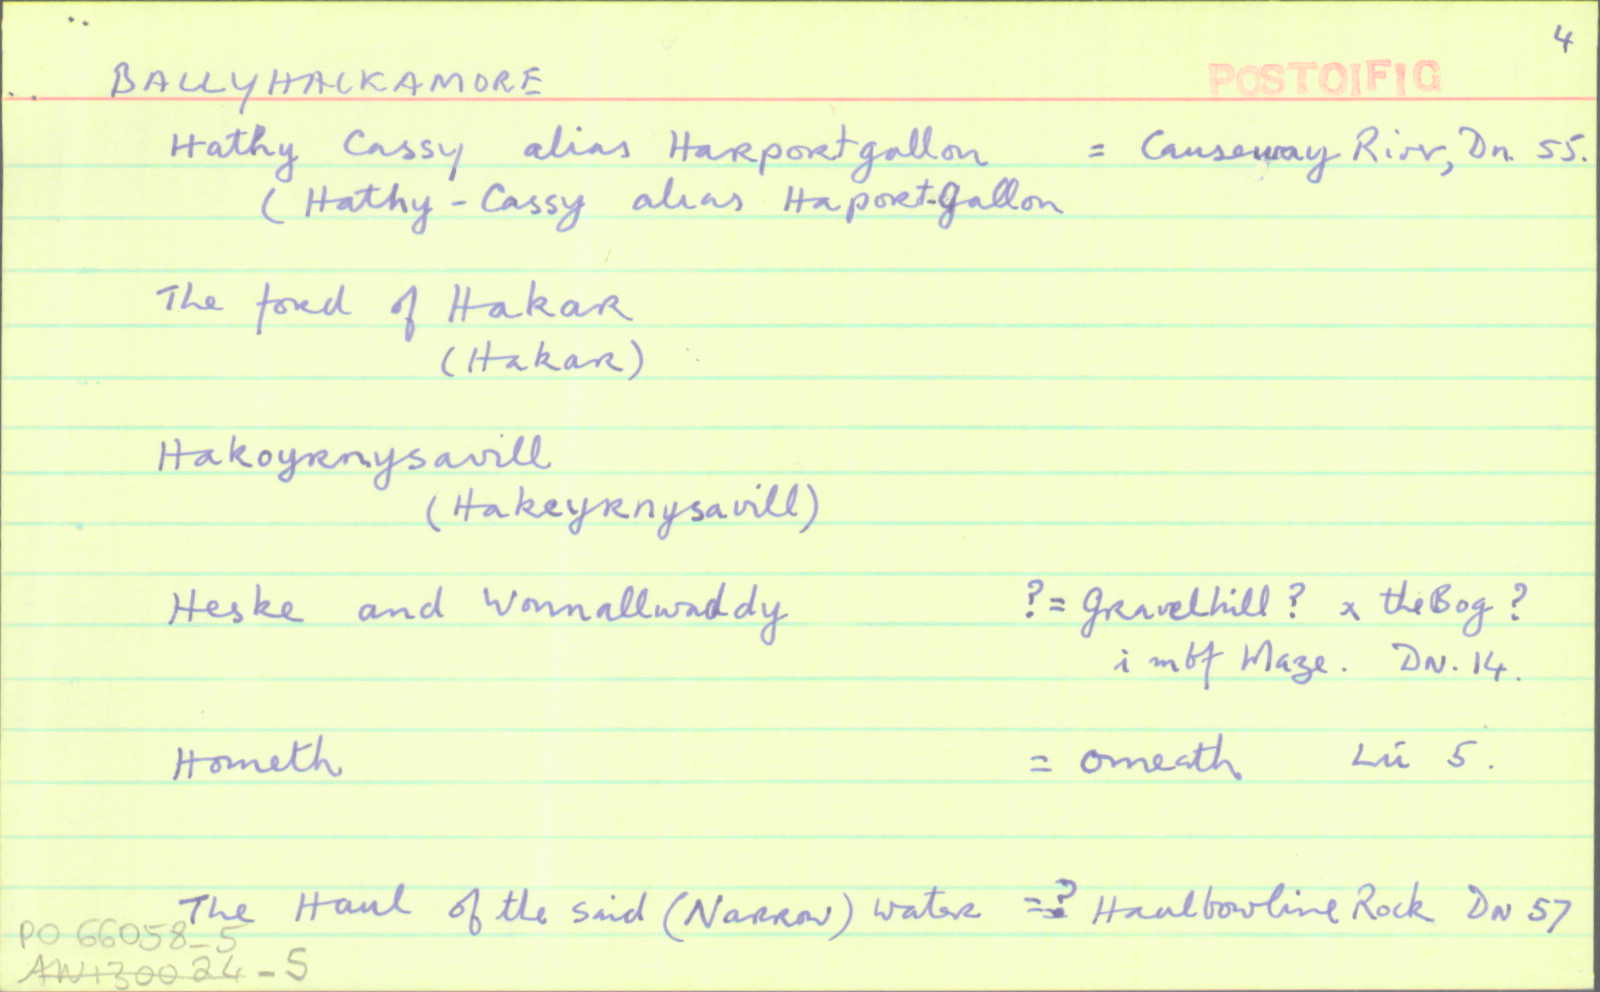 4
BALLYHACKAMORE
POSTOIFIG
Hathy Cassy alias Harportgallon = Causeway River, Dn. 55.
(Hathy-Cassy alias Haport-gallon
The ford of Hakar
(Hakar)
Hakoyrnysavill
(Hakeyrnysavill)
Heske and Wonnallwaddy ?= Gravelhill? x the Bog?
i mbf Maze. DN. 14.
Hometh = Omeath Lú 5.
The Haul of the said (Narrow) water =? Haulbowline Rock DN 57
PO 66058-5
AN130024-5